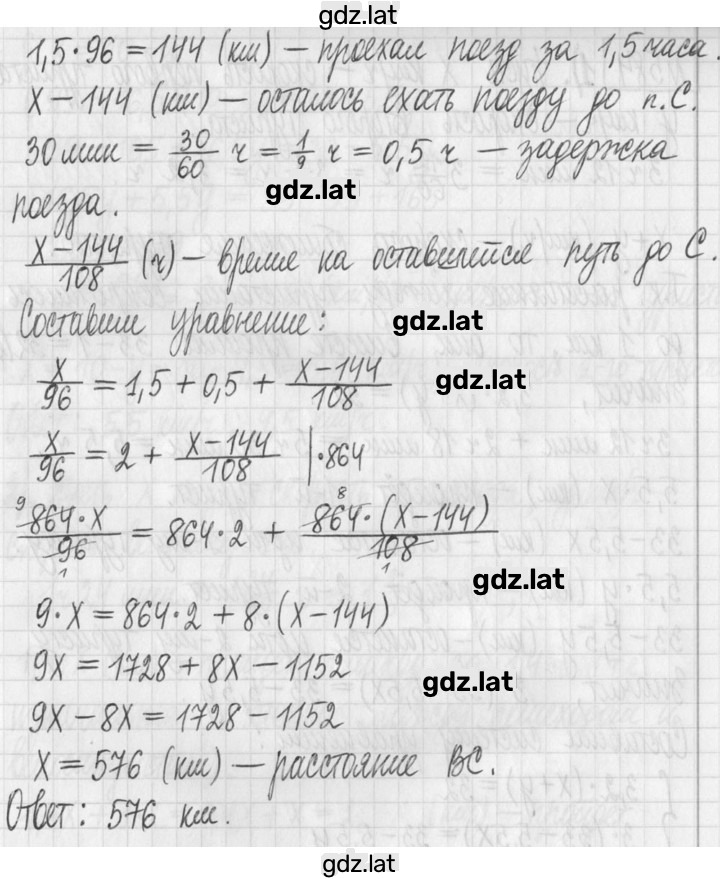 gdz.lat
1,5·96 = 144 (км) – проехал поезд за 1,5 часа.
х – 144 (км) – осталось ехать поезду до п. С.
30 мин = 30/60 ч = 1/9 ч = 0,5 ч – задержка
gdz.lat
поезда.
х – 144/108 (ч) – время на оставшейся путь до С.
Составим уравнение: gdz.lat
х/96 = 1,5 + 0,5 + х – 144/108 gdz.lat
х/96 = 2 + х – 144/108 |·864
9 864·х/96 1 = 864·2 + 8 864·(х – 144)/108 1
gdz.lat
9·х = 864·2 + 8·(х – 144)
9х = 1728 + 8х – 1152
gdz.lat
9х – 8х = 1728 – 1152
х = 576 (км) – расстояние ВС.
Ответ: 576 км.
gdz.lat